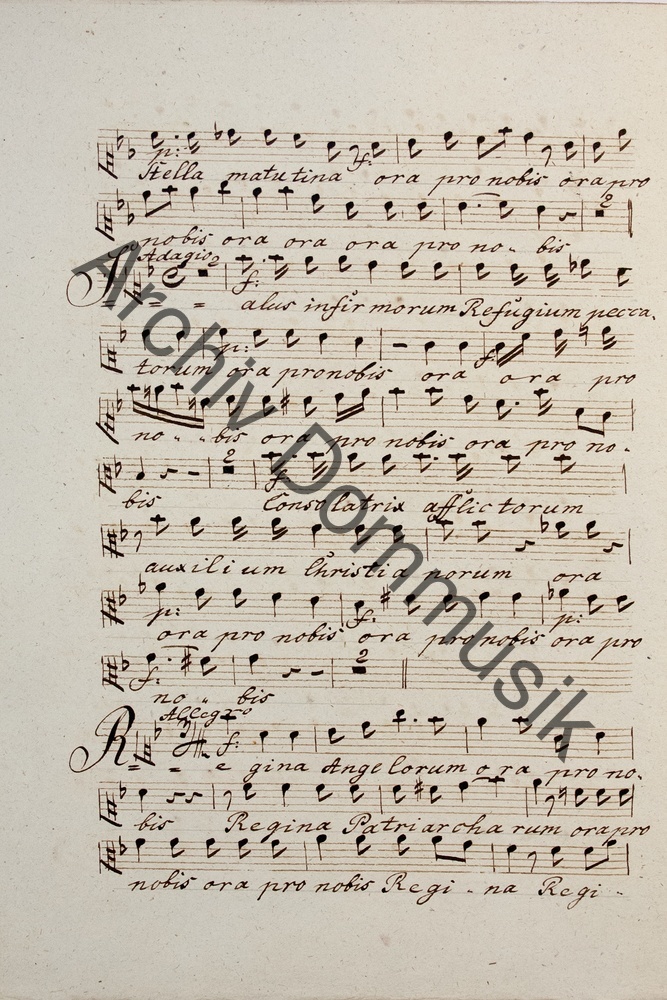 p: f:
Stella matutina ora pro nobis ora pro
2
nobis ora ora ora pro no - bis
Adagio 2
f:
S = = alus infirmorum Refugium pecca-
p: f:
torum ora pro nobis ora ora pro
no - - bis ora pro nobis ora pro no-
2 f:
bis Consolatrix afflictorum
auxilium Christianorum ora
p: f: p:
ora pro nobis ora pro nobis ora pro
f: 2
no - bis
Allegro
f:
R = = e gina Angelorum ora pro no-
bis Regina Patriarcharum ora pro
nobis ora pro nobis Regi - na Regi -
Archiv Dommusik